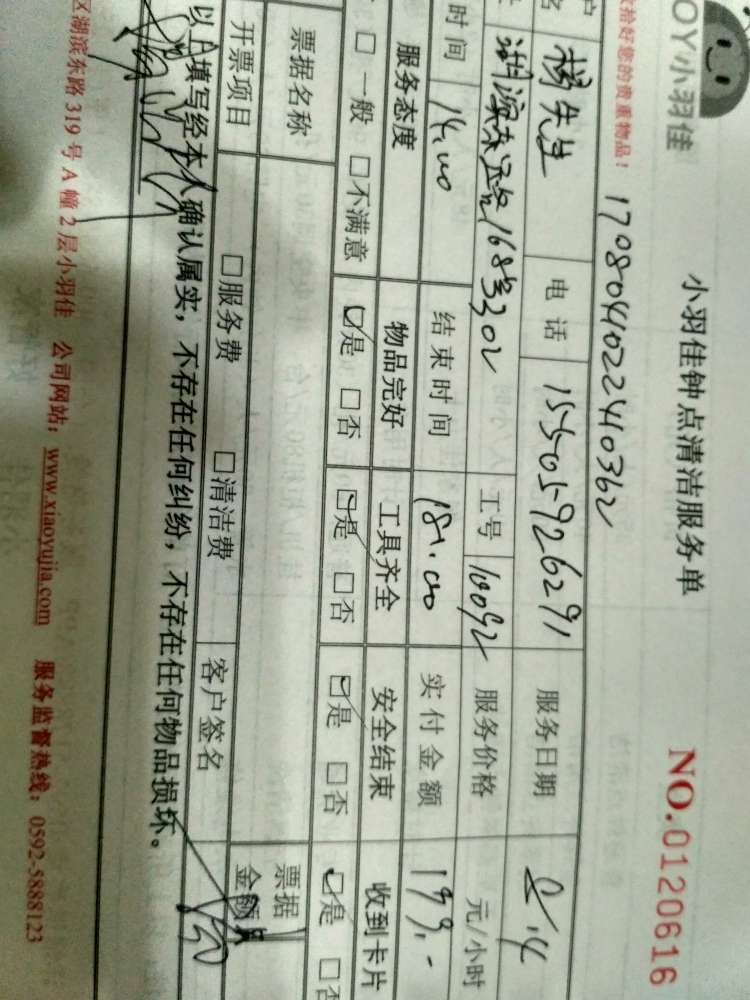 OY小羽佳
小羽佳钟点清洁服务单
NO.0120616
收拾好您的贵重物品！
17080410224 10362
杨先生 电话 15505926291 服务日期 8.14
湖滨东路168号302 工号 10092 服务价格 元/小时
时间 14.00 结束时间 18.00 实付金额 199.-
服务态度 物品完好 工具齐全 安全结束 收到卡片
□一般 □不满意 ☑是 □否 ☑是 □否 ☑是 □否 ☑是 □否
票据名称 票据金额
开票项目 □服务费 □清洁费 客户签名
以上填写经本人确认属实，不存在任何纠纷，不存在任何物品损坏。
区湖滨东路319号A幢2层小羽佳 公司网站：www.xiaoyujia.com 服务监督热线：0592-5888123